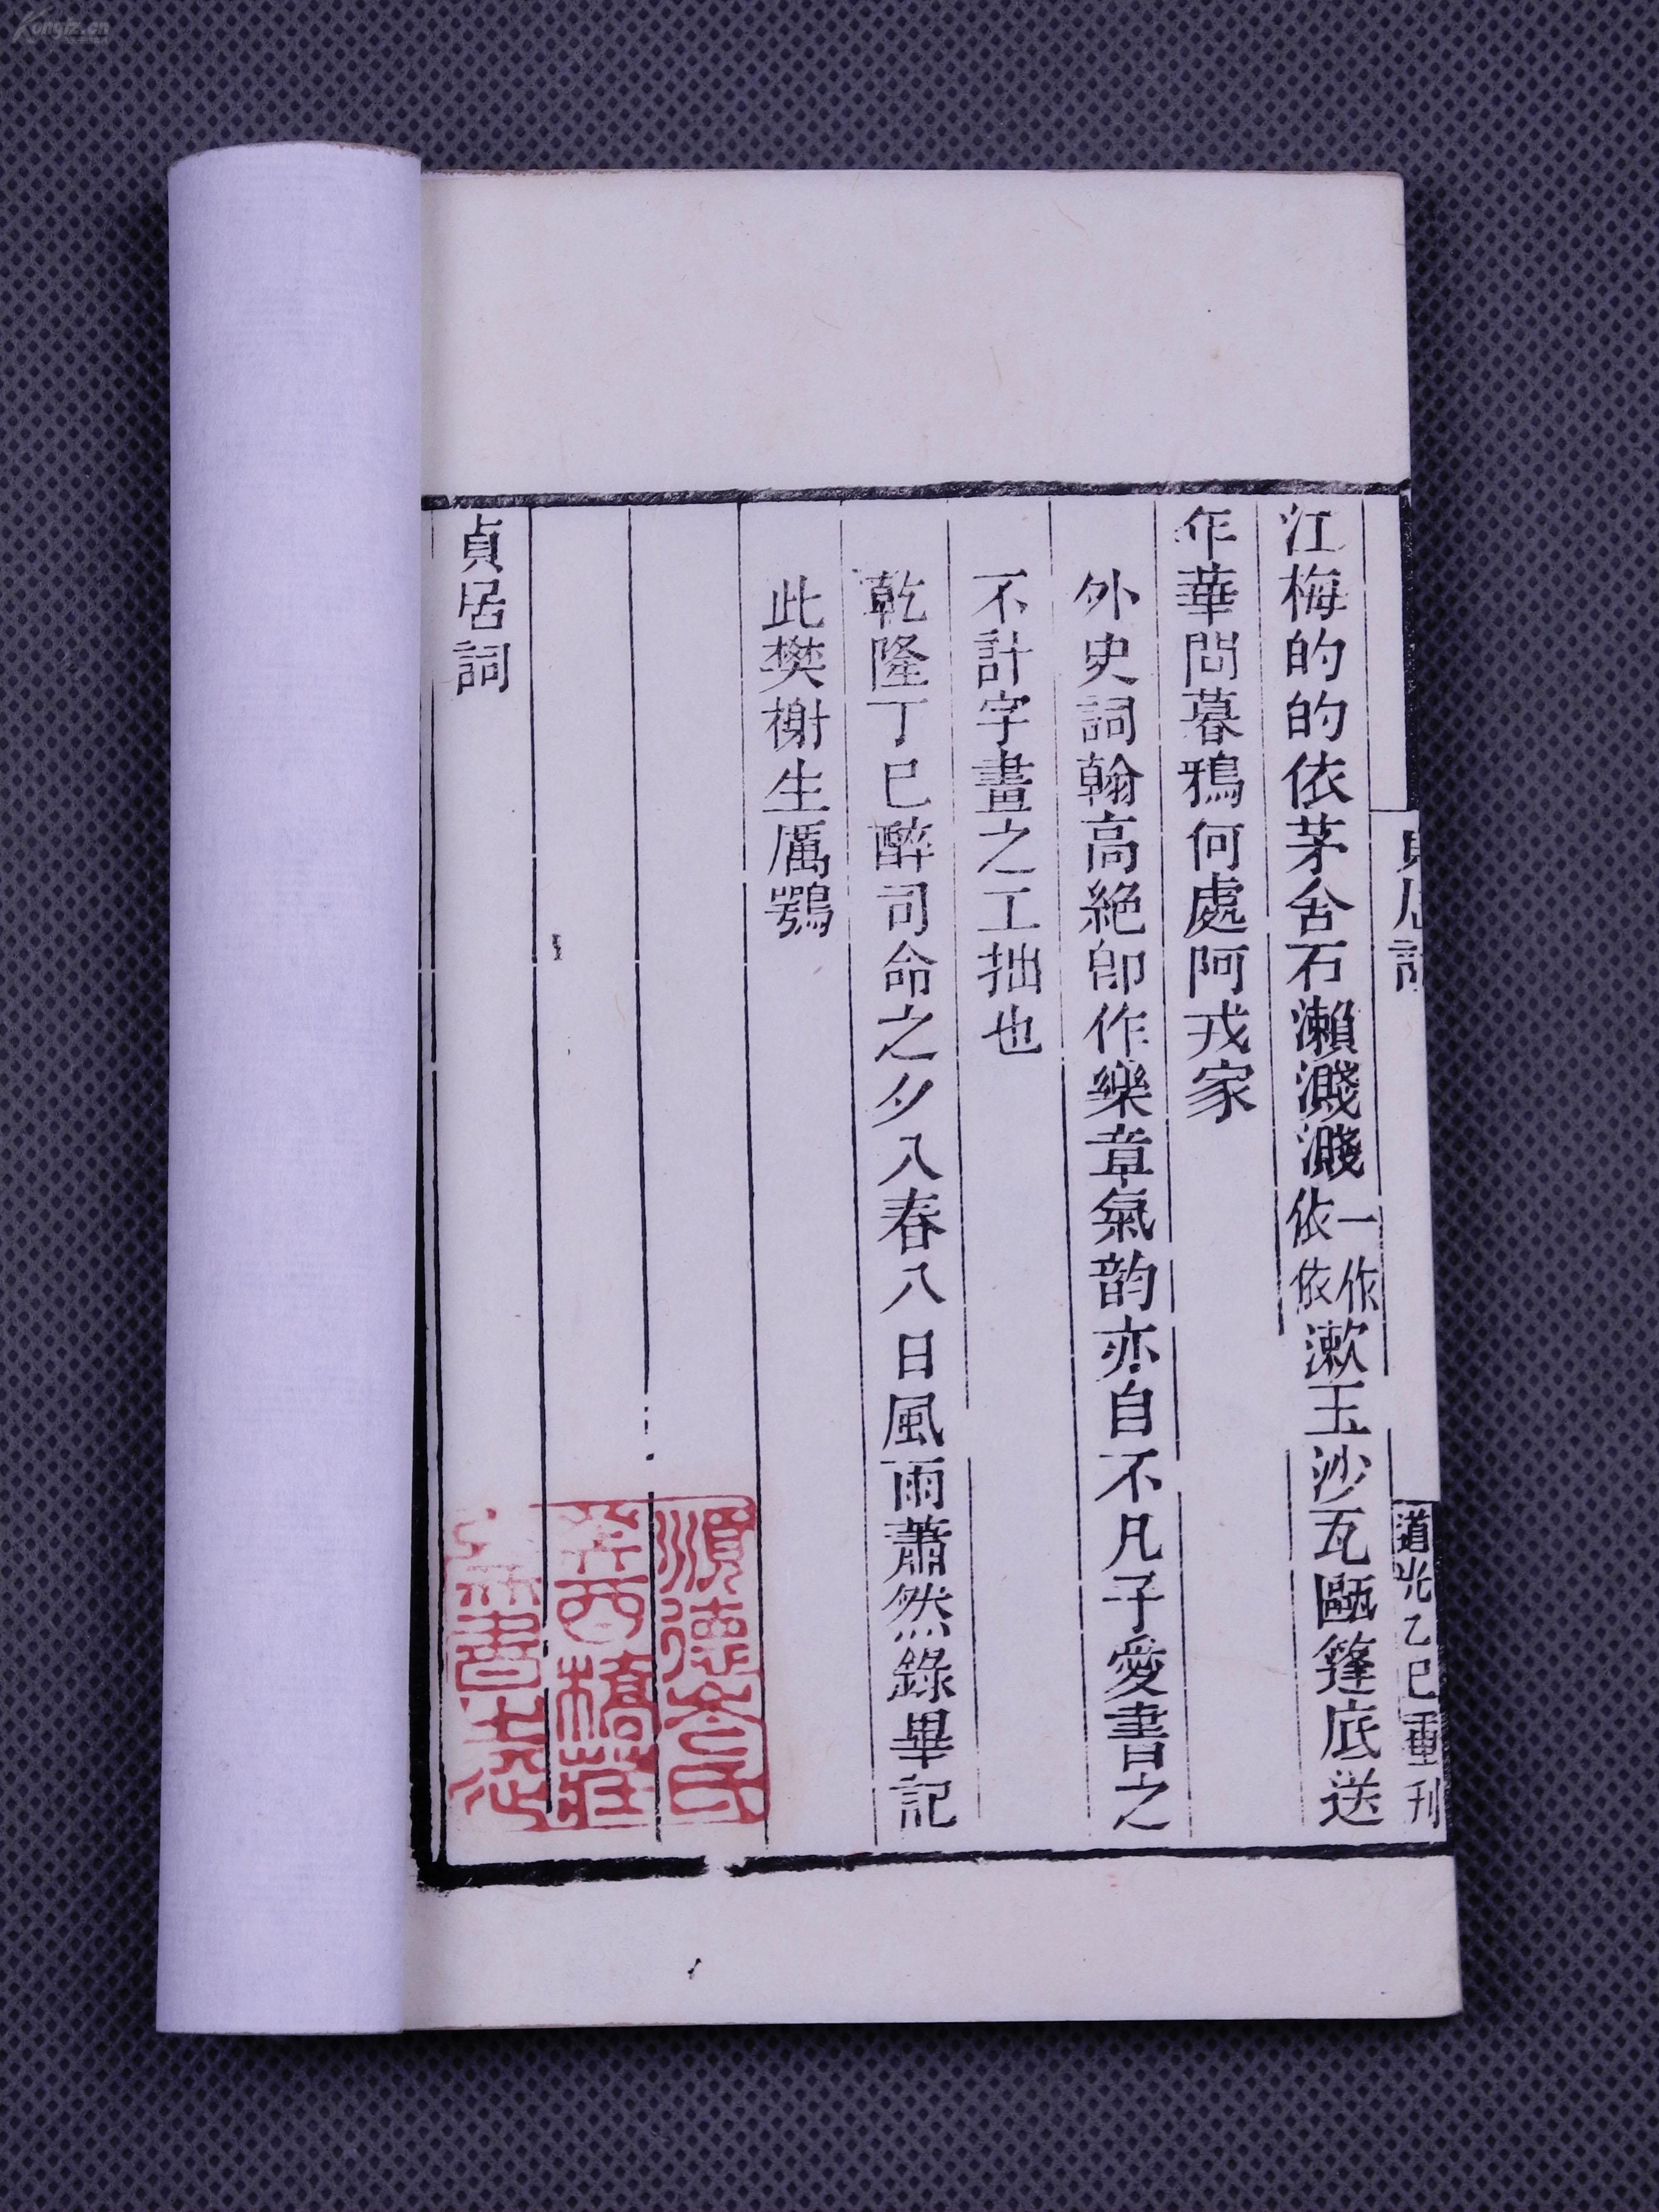 貞居詞
道光乙巳重刊
江梅的的依茅舍石瀨濺濺一作依依漱玉沙瓦甌篷底送
年華問暮鴉何處阿戎家
外史詞翰高絶即作樂章氣韵亦自不凡子愛書之
不計字畫之工拙也
乾隆丁巳醉司命之夕入春八日風雨蕭然錄畢記
此樊榭生厲鶚
順德氏
西橋莊
書
貞居詞
Kongfz.cn